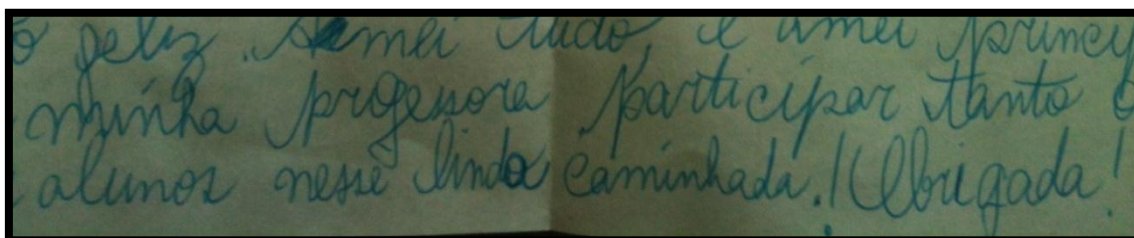 o feliz. Amei tudo, e amei princi
minha professora participar tanto
alunos nesse linda caminhada.! Obrigada!